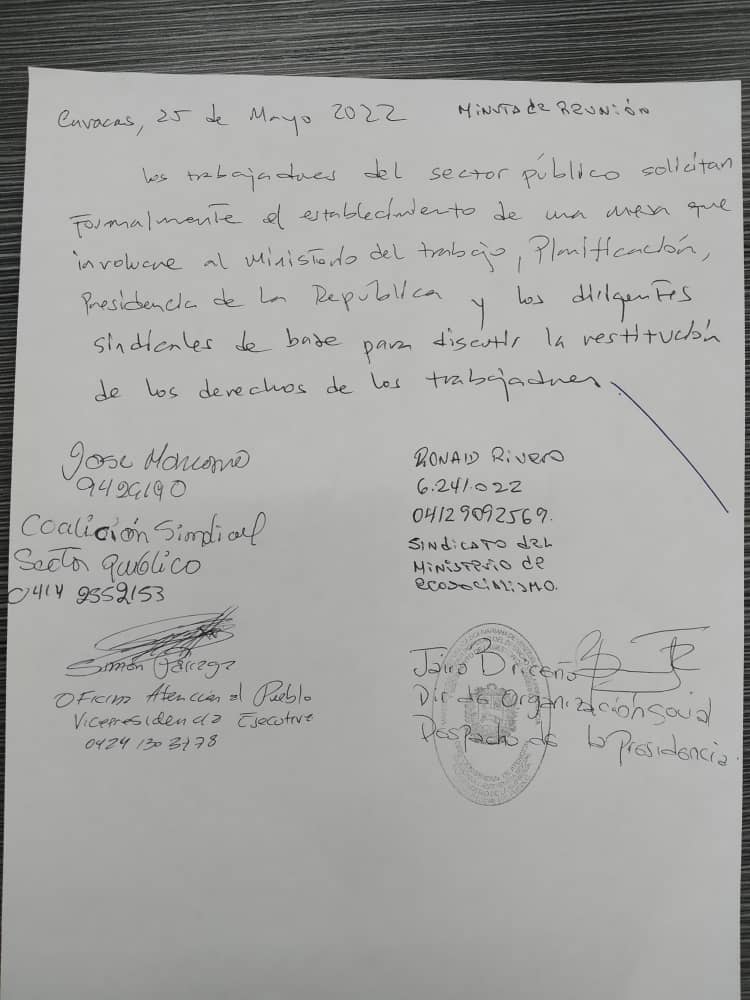 Caracas, 25 de Mayo 2022 Minuta de Reunión
Los trabajadores del sector público solicitan
Formalmente el establecimiento de una mesa que
involucre al Ministerio del trabajo, Planificación,
Presidencia de La República y los dirigentes
sindicales de base para discutir la restitución
de los derechos de los trabajadores.
Jose
9429190
Coalición Sindical
Sector público
0414 2352153
RONALD Rivero
6.241.022
04129092569.
SINDICATO del
MINISTERIO de
ecosocialismo.
Simón
Oficina Atención al Pueblo
Vicepresidencia Ejecutiva
0424 130 3178
Jairo Briceño
Dir de Organización Social
Despacho de la Presidencia.